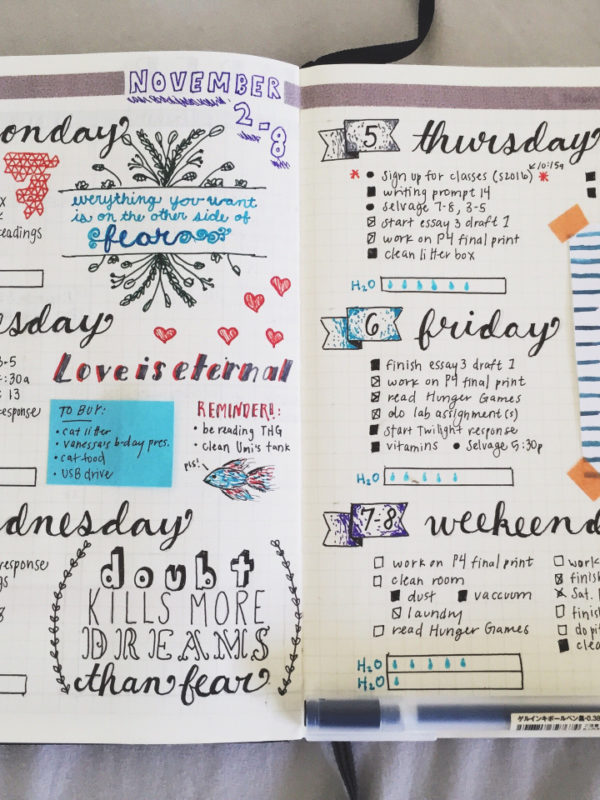 NOVEMBER
2-8
onday
everything you want
is on the other side of
fear
readings
sday
3-5
:30a
13
response
Love is eternal
TO BUY:
• cat litter
• vanessa's b-day pres.
• cat food
• USB drive
REMINDER!!:
• be reading THG
• clean Umi's tank
pls!
dnesday
response
gs
8
doubt
KILLS MORE
DREAMS
than fear
5 thursday
10:15a
* • sign up for classes (S2016) *
writing prompt 14
• selvage 7-8, 3-5
start essay 3 draft 1
work on P4 final print
clean litter box
H2O
6 friday
finish essay 3 draft 1
work on P4 final print
read Hunger Games
do lab assignment(s)
start Twilight response
vitamins • selvage 5:30p
H2O
7-8 weekend
work on P4 final print
clean room
dust vaccuum
laundry
read Hunger Games
work
finish
Sat.
finish
do pi
clea
H2O
H2O
ゲルインキボールペン黒・0.38